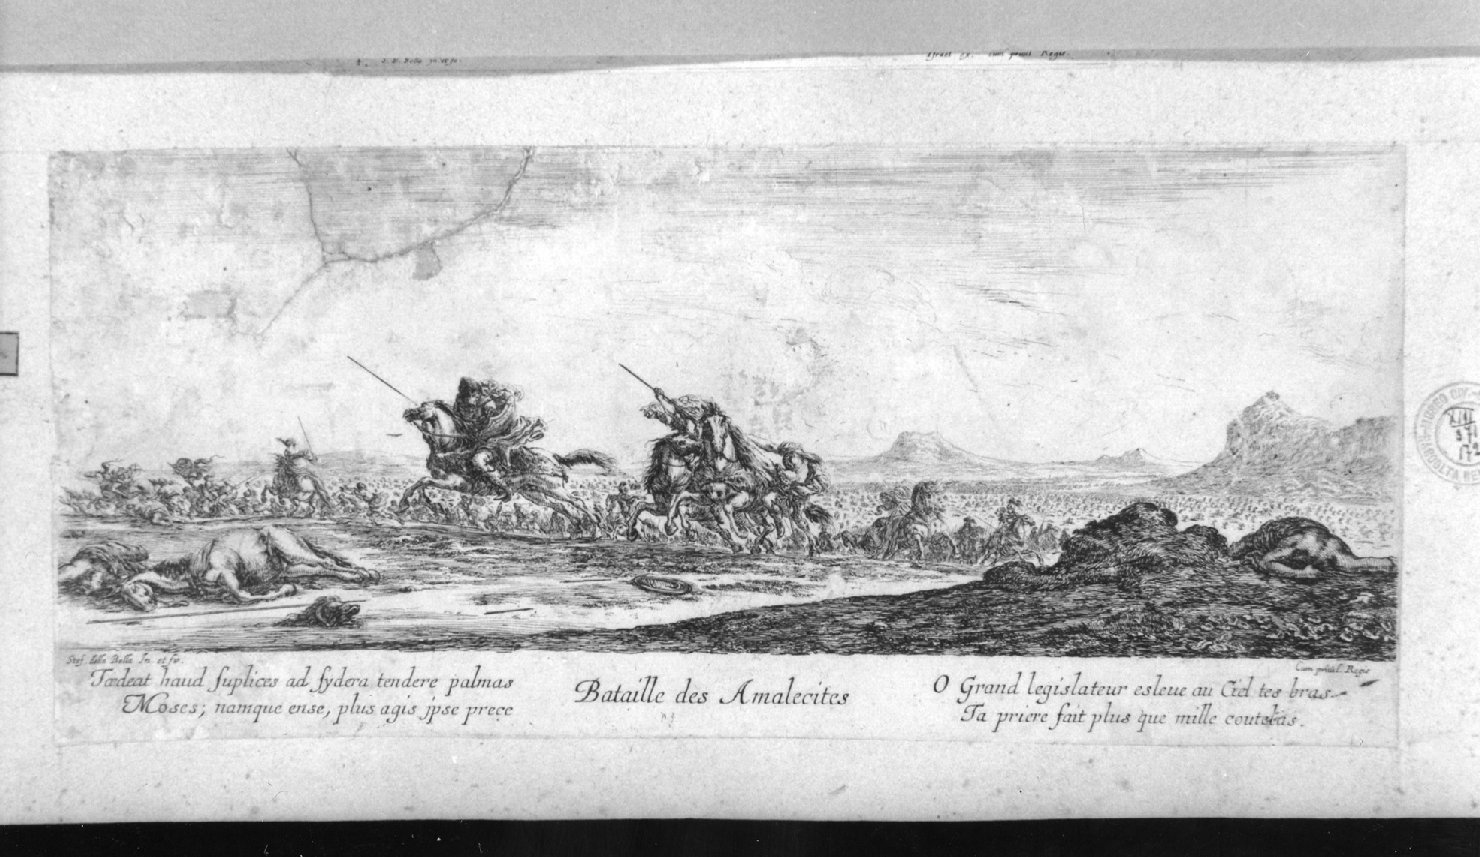 Israel ex. cum privil Regis.
Stef. della Bella In. et fe.
Cum privil. Regis
Tædeat haud suplices ad sydera tendere palmas
Moses; namque ense, plus agis jpse prece
Bataille des Amalecites
O Grand legislateur esleue au Ciel tes bras
Ta priere fait plus que mille coutelas.